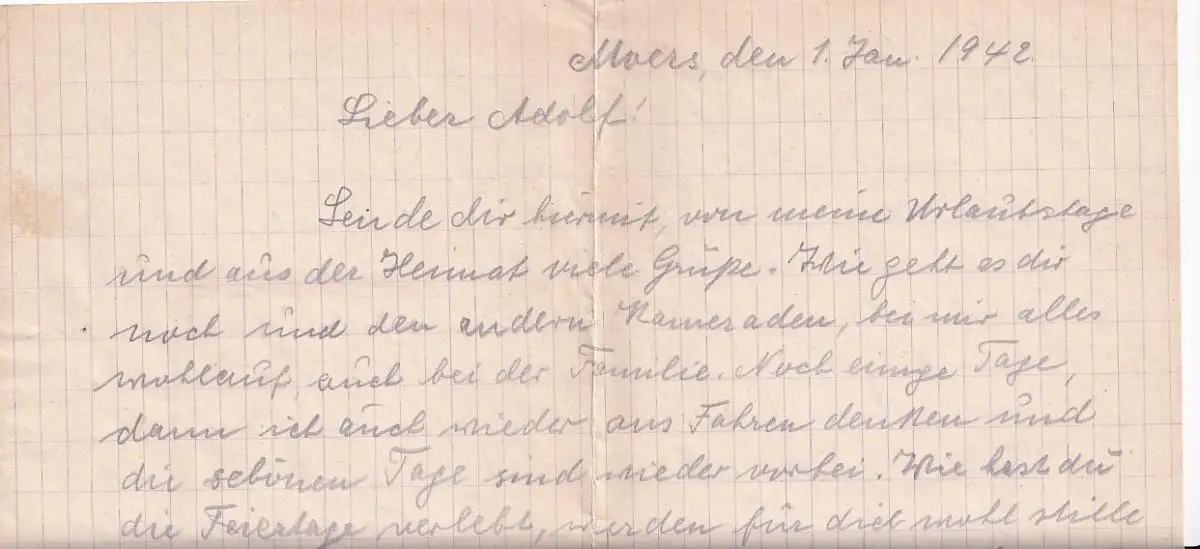 Moers, den 1. Jan. 1942.
Lieber Adolf!
Sende dir hiermit, von meine Urlaubstage
und aus der Heimat viele Grüße. Wie geht es dir
noch und den andern Kameraden, bei mir alles
wohlauf, auch bei der Familie. Noch einige Tage,
dann ich auch wieder ans Fahren denken und
die schönen Tage sind wieder vorbei. Wie hast du
die Feiertage verlebt, werden für dich wohl stille